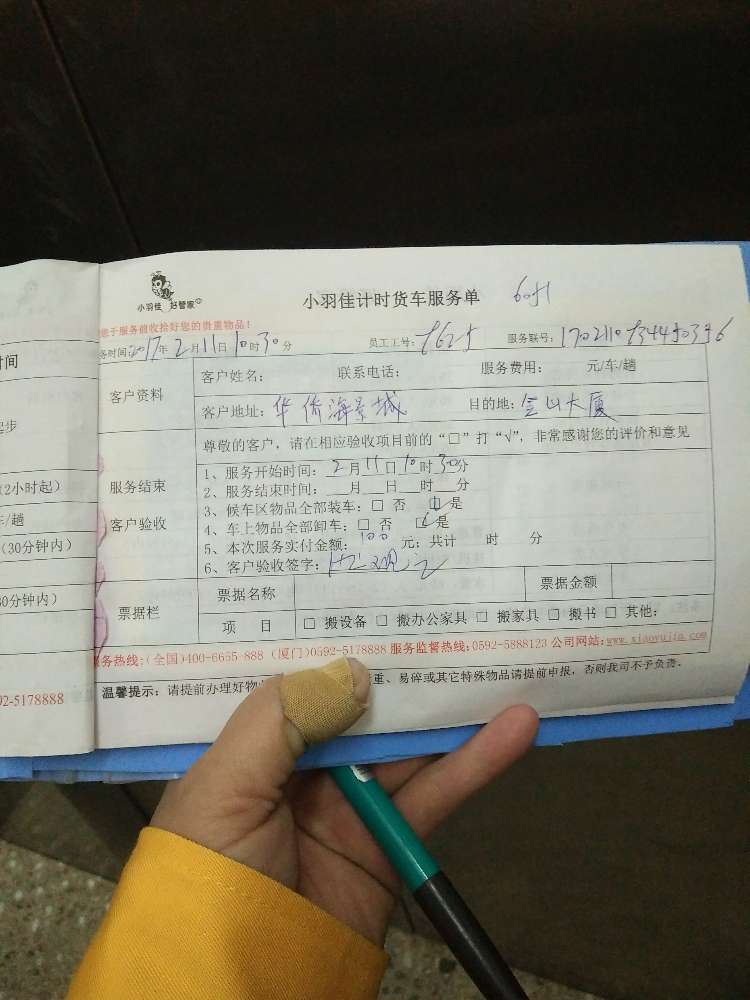 小羽佳 好管家
小羽佳计时货车服务单
您于服务前收拾好您的贵重物品！
务时间:2017年2月11日10时30分 员工工号: 服务联号:
客户资料
客户姓名： 联系电话： 服务费用： 元/车/趟
客户地址：华侨海景城 目的地：金山大厦
服务结束
客户验收
尊敬的客户，请在相应验收项目前的“□”打“√”，非常感谢您的评价和意见
1、服务开始时间：2月11日10时30分
2、服务结束时间：__月__日__时__分
3、候车区物品全部装车：□ 否 ☑是
4、车上物品全部卸车：□ 否 ☑是
5、本次服务实付金额：100元；共计 时 分
6、客户验收签字：
票据栏
票据名称 票据金额
项 目 □ 搬设备 □ 搬办公家具 □ 搬家具 □ 搬书 □ 其他：
务热线:(全国)400-6655-888 (厦门)0592-5178888 服务监督热线:0592-5888123 公司网站:www.xiaoyujia.com
温馨提示：请提前办理好物 重、易碎或其它特殊物品请提前申报，否则我司不予负责。
时间
起步
(2小时起)
车/趟
(30分钟内)
30分钟内)
92-5178888